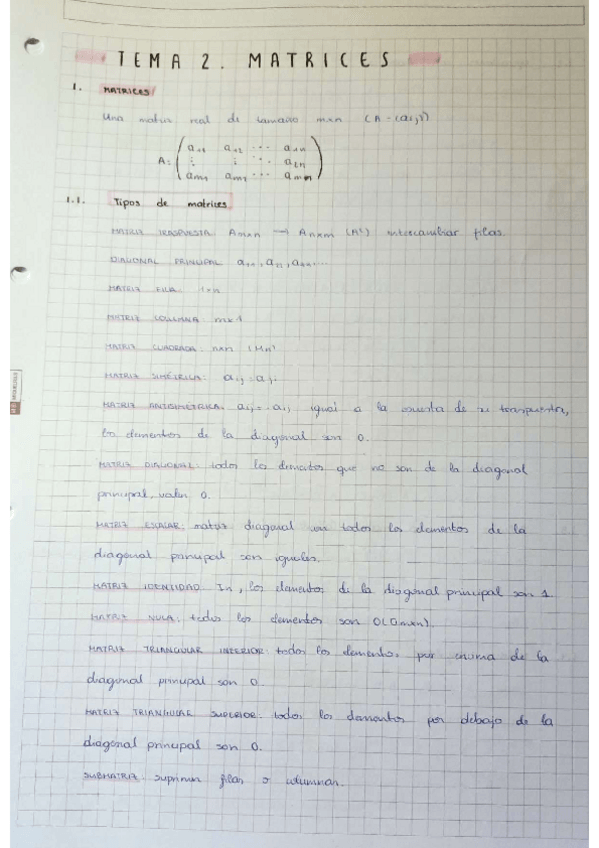 TEMA 2. MATRICES
1. MATRICES
Una matriz real de tamaño mxn (A = (aij))
A = ( a11 a12 ... a1n
⋮ ⋮ ⋱ a2n
am1 am1 ... amn )
1.1. Tipos de matrices
MATRIZ TRASPUESTA: Amxn → Anxm (At) intercambiar filas.
DIAGONAL PRINCIPAL: a11, a22, a33...
MATRIZ FILA: 1xn
MATRIZ COLUMNA: mx1
MATRIZ CUADRADA: nxn (Mn)
MATRIZ SIMÉTRICA: aij = aji
MATRIZ ANTISIMÉTRICA: aij = -aji igual a la opuesta de su traspuesta,
los elementos de la diagonal son 0.
MATRIZ DIAGONAL: todos los elementos que no son de la diagonal
principal, valen 0.
MATRIZ ESCALAR: matriz diagonal con todos los elementos de la
diagonal principal son iguales.
MATRIZ IDENTIDAD: In, los elementos de la diagonal principal son 1
MATRIZ NULA: todos los elementos son 0 (Omxn).
MATRIZ TRIANGULAR INFERIOR: todos los elementos por encima de la
diagonal principal son 0.
MATRIZ TRIANGULAR SUPERIOR: todos los elementos por debajo de la
diagonal principal son 0.
SUBMATRIZ: suprimir filas o columnas.